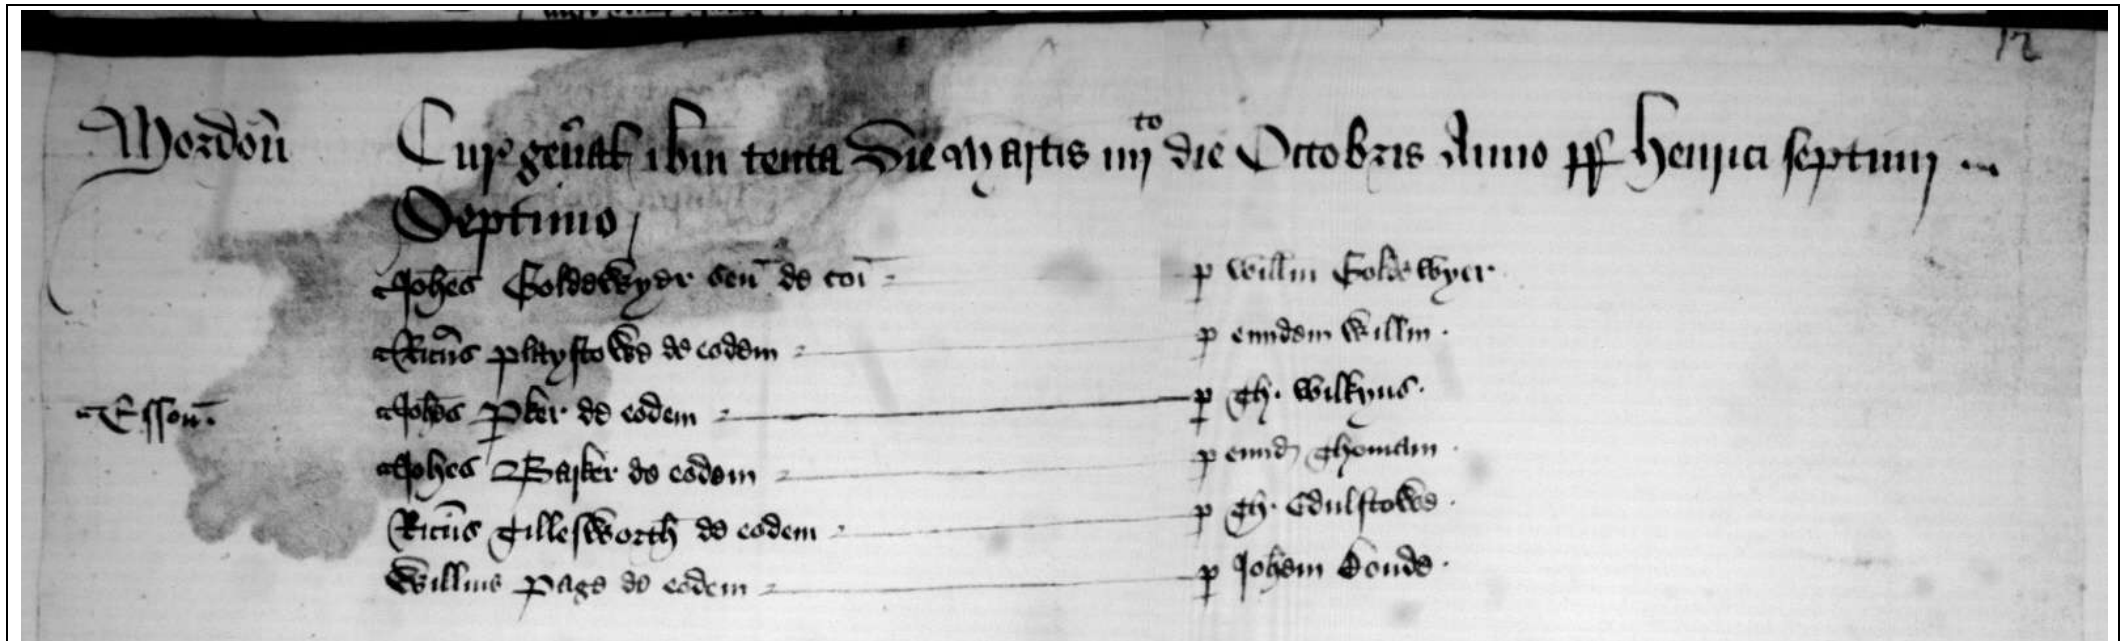 12
Mordoñ Cur genal ibm tenta Die Martis iiijto die Octobris Anno rr Henrici septimi
Septimo
Johes Goldewyer Seń de coi p Willm Goldewyer
Ricus Playstowe de eodem p eundem Willm
Esson Johes Pker de eodem p Th. Wilkyns
Johes Barker de eodem p eund Thomam
Ricus Tillesworth de eodem p Th. Edulstowe
Willms Page de eodem p Johem Bonde